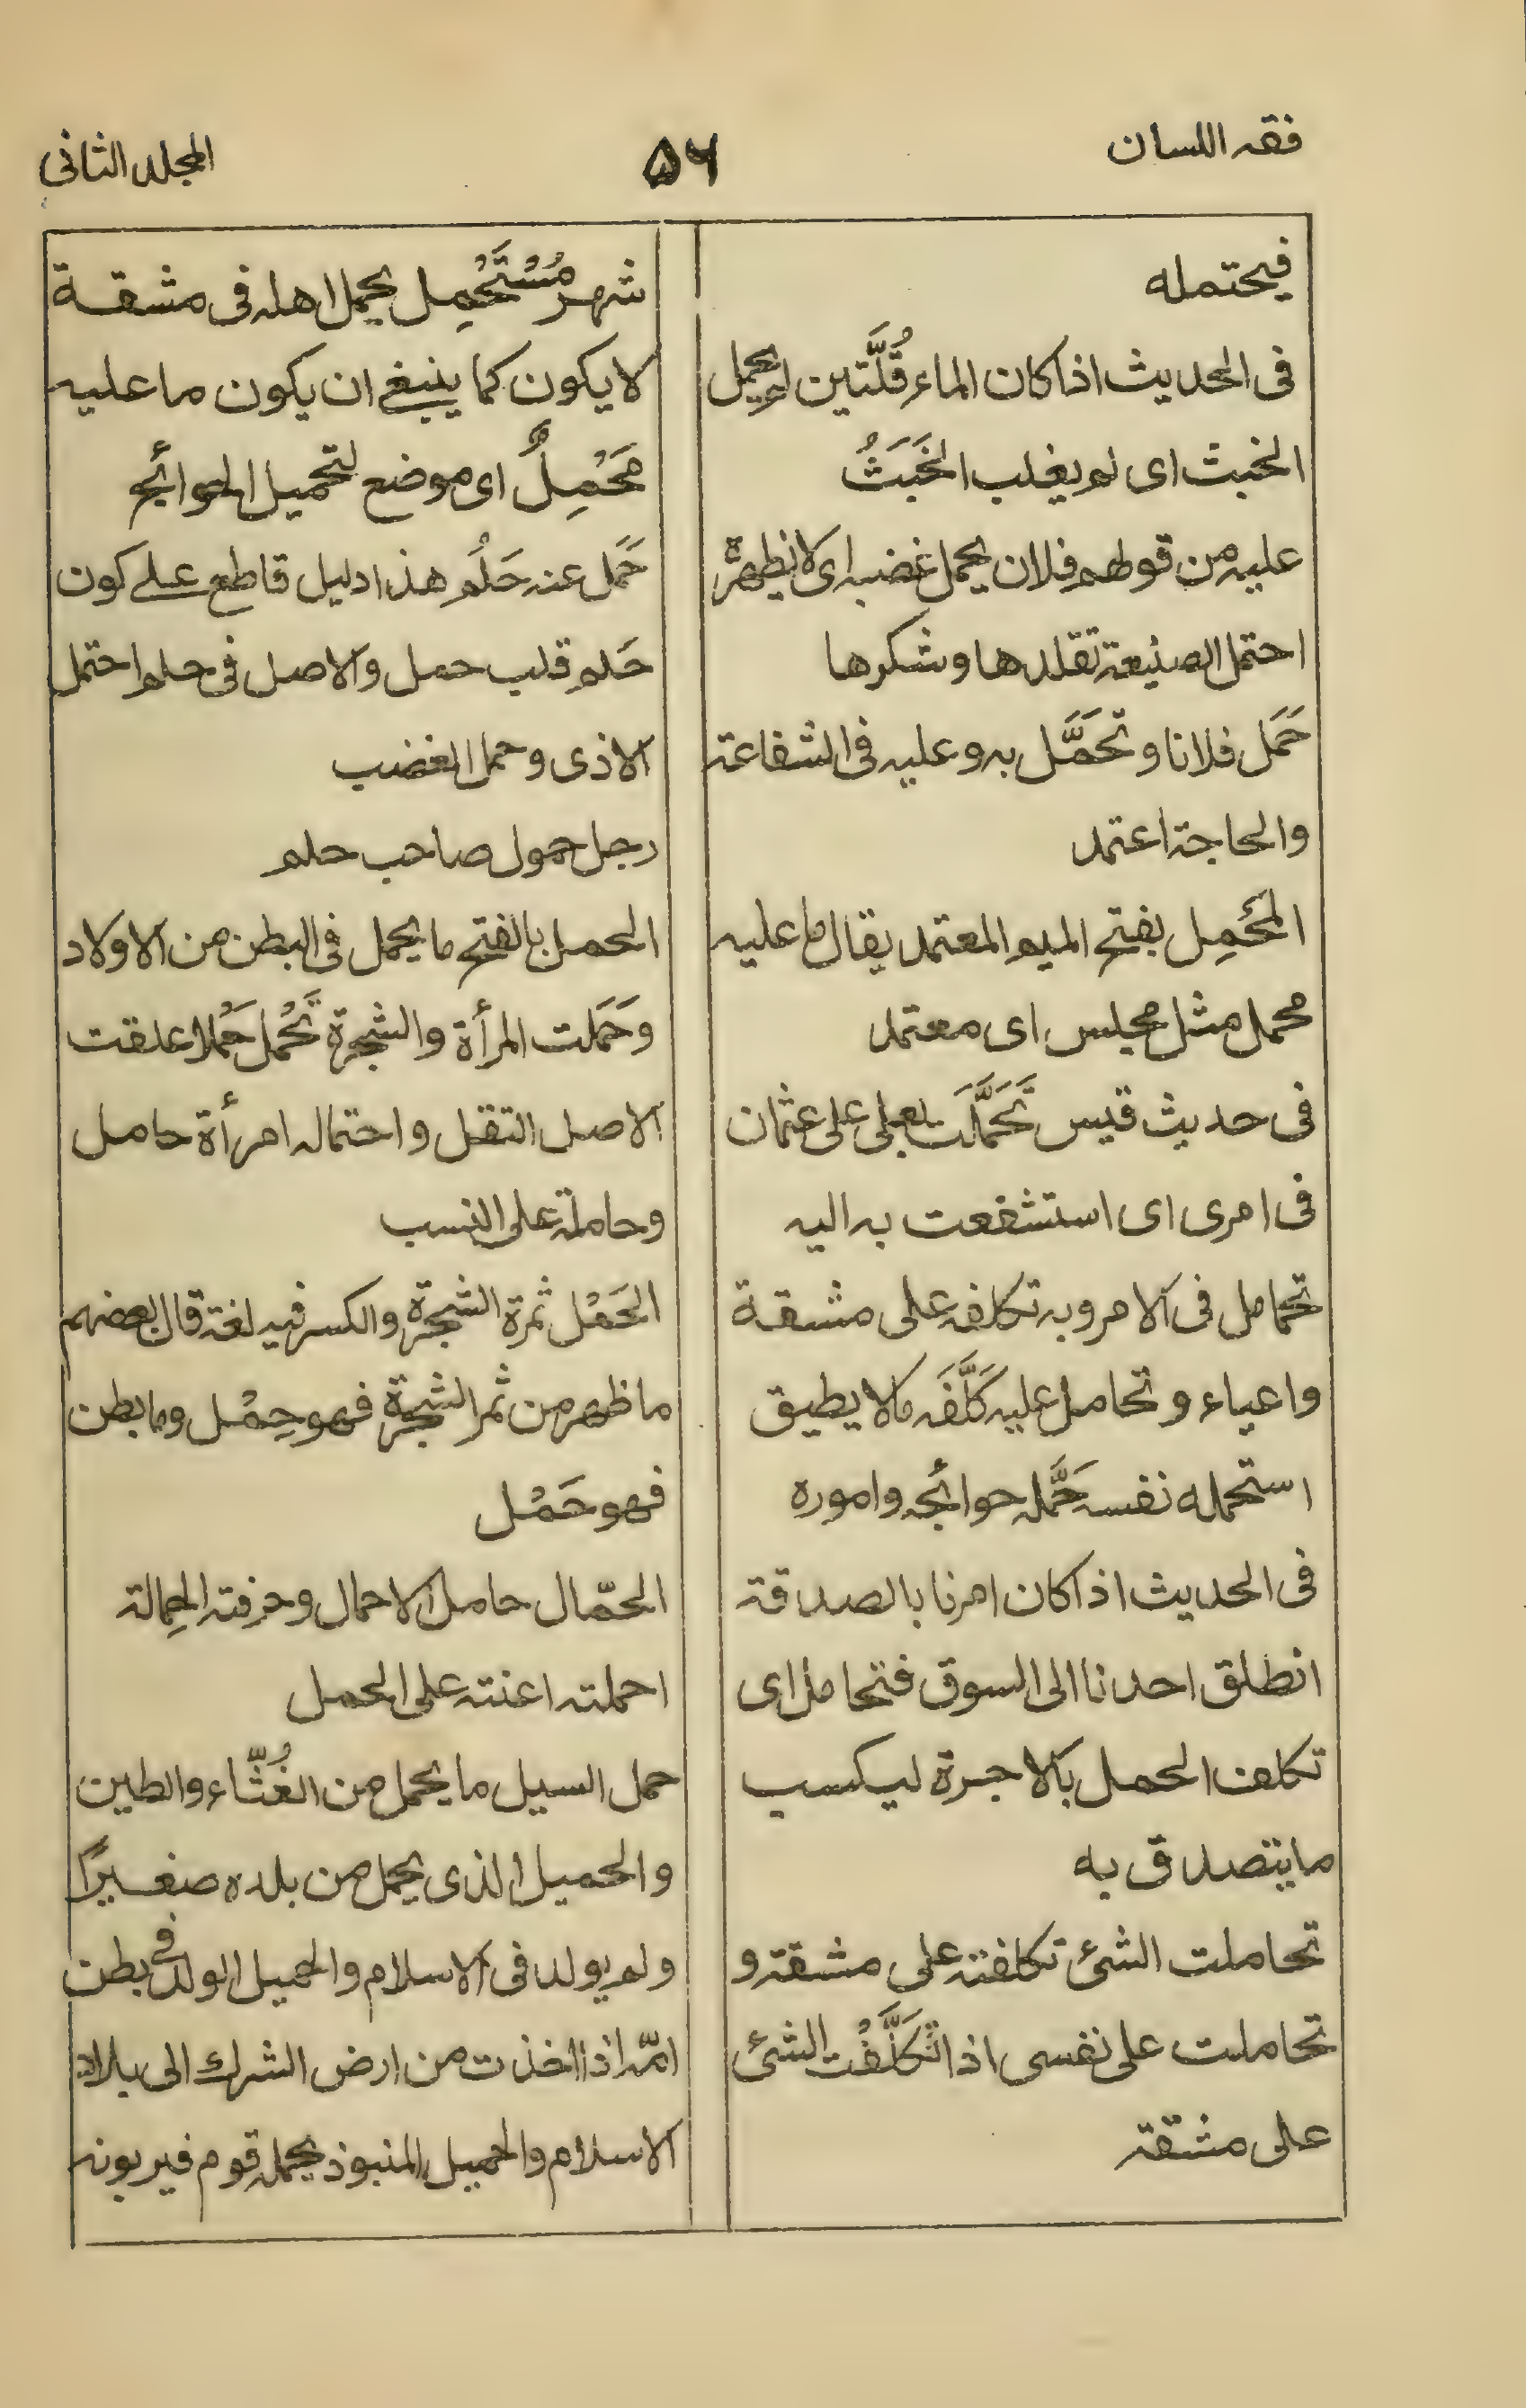 فقه اللسان
۵۶
المجلد الثانى
فيحتمله
فى الحديث اذا كان الماء قُلَّتين لم يحمل
الخبث اى لم يغلب الخَبَثُ
عليه من قولهم فلان يحمل غضبه اى لا يظهره
احتمل الصنيعة تقلدها وشكرها
حَمَل فلانا و تَحَمَّل به و عليه فى الشفاعة
والحاجة اعتمد
المَحْمِل بفتح الميم المعتمد يقال ما عليه
محمل مثل مجلس اى معتمد
فى حديث قيس تَحَمَّلَت بعلى على عثمان
فى امرى اى استشفعت به اليه
تحامل فى الامر وبه تكلفه على مشقة
واعياء و تحامل عليه كَلَّفَه مالا يطيق
استحمله نفسه حَمَّله حوائجه واموره
فى الحديث اذا كان امرنا بالصدقة
انطلق احدنا الى السوق فتحامل اى
تكلف الحمل بالاجرة ليكسب
ما يتصدق به
تحاملت الشئ تكلفته على مشقة و
تحاملت على نفسى اذا تَكَلَّفْت الشئ
على مشقة
شهر مُسْتَحْمِل يحمل اهله فى مشقة
لا يكون كما ينبغى ان يكون ما عليه
مَحْمِلٌ اى موضع لتحميل الحوائج
حَمَل عنه حَلُم هذا دليل قاطع على كون
حَلم قلب حمل والاصل فى حلم احتمل
الاذى وحمل الغضب
رجل حمول صاحب حلم
الحمل بالفتح ما يحمل فى البطن من الاولاد
وَحَمَلت المرأة والشجرة تَحْمل حَمْلا علقت
الاصل الثقل و احتماله امرأة حامل
وحاملة على النسب
الحَمْل ثمرة الشجرة والكسر فيه لغة قال بعضهم
ما ظهر من ثمر الشجرة فهو حِمْل وما بطن
فهو حَمْل
الحمّال حامل الاحمال وحرفته الحِمالة
احملته اعنته على الحمل
حمل السيل ما يحمل من الغُثّاء والطين
والحميل الذى يحمل من بلده صغيرًا
ولم يولد فى الاسلام والحميل الولد فى بطن
امّه اذا اخذت من ارض الشرك الى بلاد
الاسلام والحميل المنبوذ يحمله قوم فيربونه